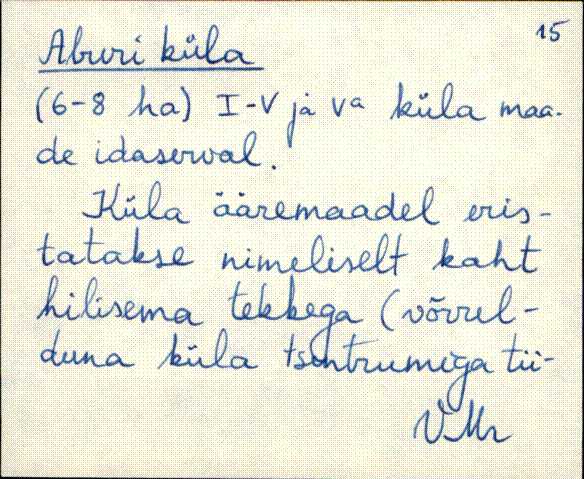 15
Aburi küla
(6-8 ha) I-V ja Va küla maa-
de idaserval.
Küla ääremaadel eris-
tatakse nimeliselt kaht
hilisema tekkega (võrrel-
duna küla tsentrumiga tii-
VMr